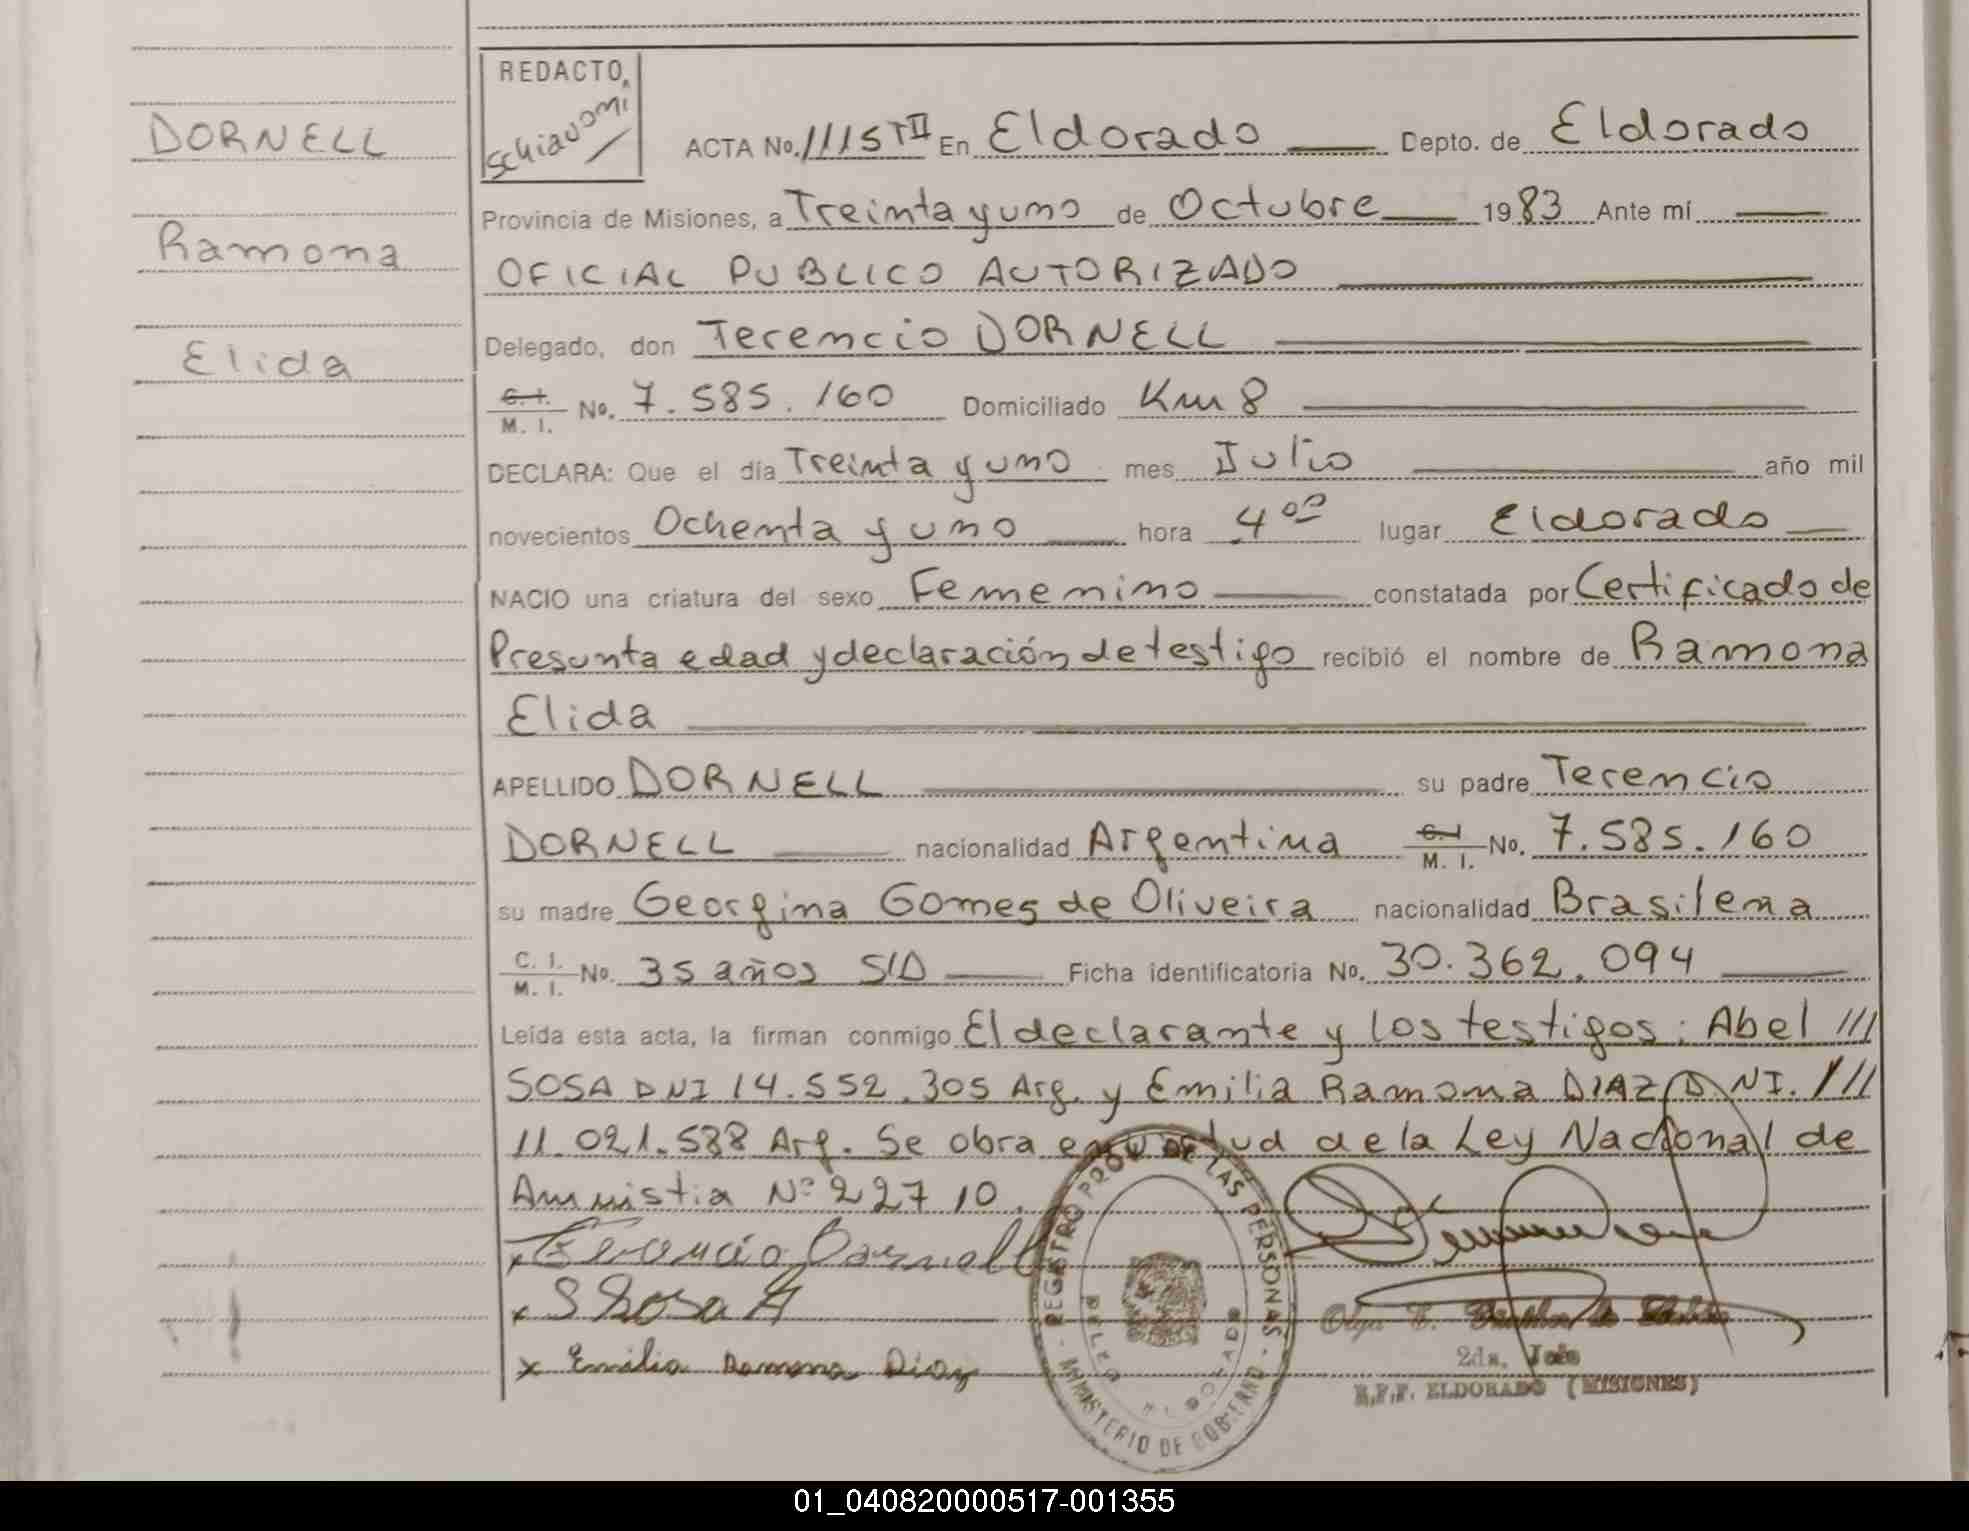 DORNELL
Ramona
Elida
REDACTO
Schiavoni
ACTA No. 1115 TII En Eldorado Depto. de Eldorado
Provincia de Misiones, a Treinta y uno de Octubre 1983 Ante mí
OFICIAL PUBLICO AUTORIZADO
Delegado, don Terencio DORNELL
C. I. M. I. No. 7.585.160 Domiciliado Km 8
DECLARA: Que el día Treinta y uno mes Julio año mil
novecientos Ochenta y uno hora 4 00 lugar Eldorado
NACIO una criatura del sexo Femenino constatada por Certificado de
Presunta edad y declaración de testigo recibió el nombre de Ramona
Elida
APELLIDO DORNELL su padre Terencio
DORNELL nacionalidad Argentina C. I. M. I. No. 7.585.160
su madre Georgina Gomes de Oliveira nacionalidad Brasilena
C. I. M. I. No. 35 años S/D Ficha identificatoria No. 30.362.094
Leída esta acta, la firman conmigo El declarante y los testigos: Abel ///
SOSA DNI 14.552.305 Arg. y Emilia Ramona DIAZ D.NI. ///
11.021.588 Arg. Se obra en virtud de la Ley Nacional de
Amnistia Nº 22710.
x Terencio Dornell
x S Sosa A
x Emilia Ramona Diaz
REGISTRO PROV. DE LAS PERSONAS
MINISTERIO DE GOBIERNO
ELDORADO
Olga E.
2da. Jefe
R.P.P. ELDORADO (MISIONES)
01_040820000517-001355